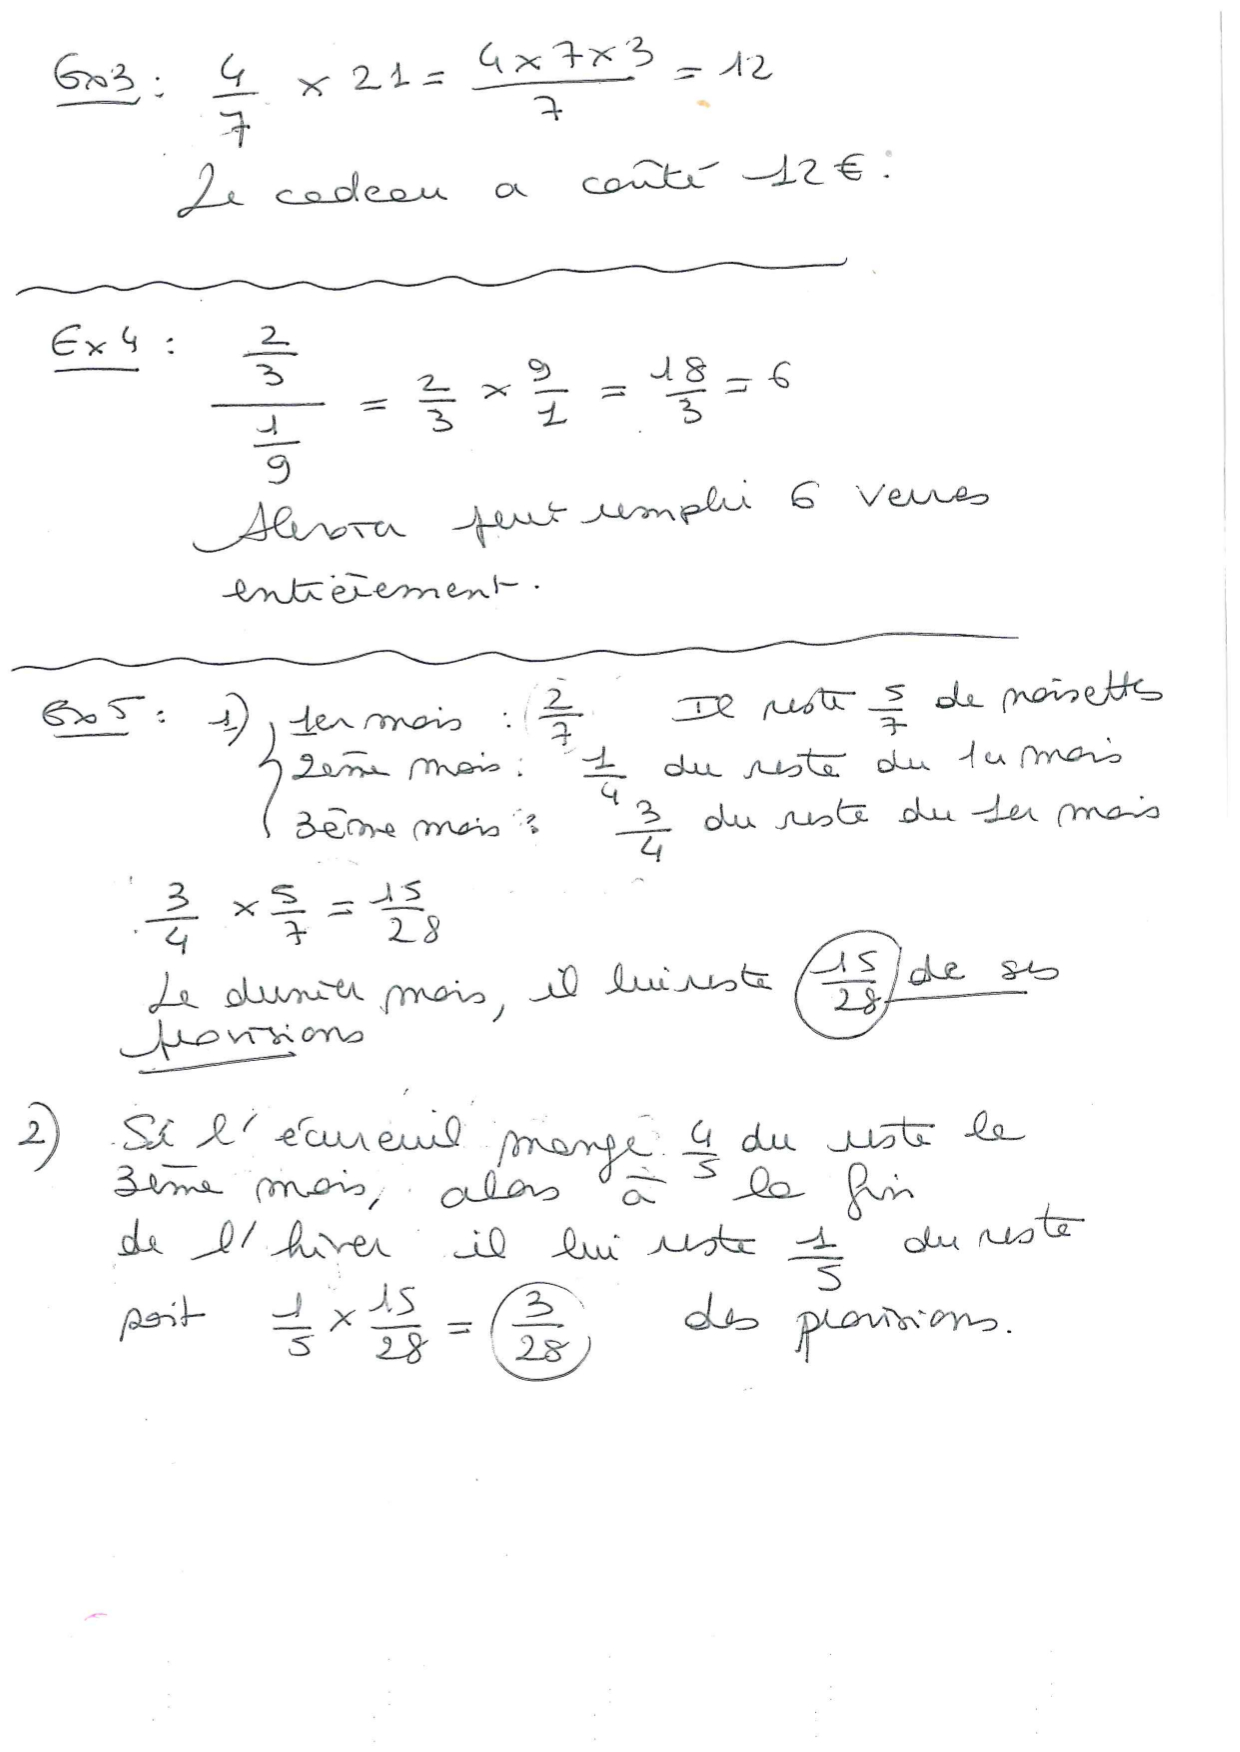 Ex3 : 4/7 × 21 = (4×7×3)/7 = 12
Le cadeau a coûté 12 € .
Ex 4 : (2/3)/(1/9) = 2/3 × 9/1 = 18/3 = 6
peut rempli 6 verres
entièrement.
Ex 5 : 1) 1er mois : 2/7 Il reste 5/7 de noisettes
2ème mois : 1/4 du reste du 1er mois
3ème mois : 3/4 du reste du 1er mois
3/4 × 5/7 = 15/28
Le dernier mois, il lui reste 15/28 de ses
provisions
2) Si l'écureuil mange 4/5 du reste le
3ème mois, alors à la fin
de l'hiver il lui reste 1/5 du reste
soit 1/5 × 15/28 = 3/28 des provisions.